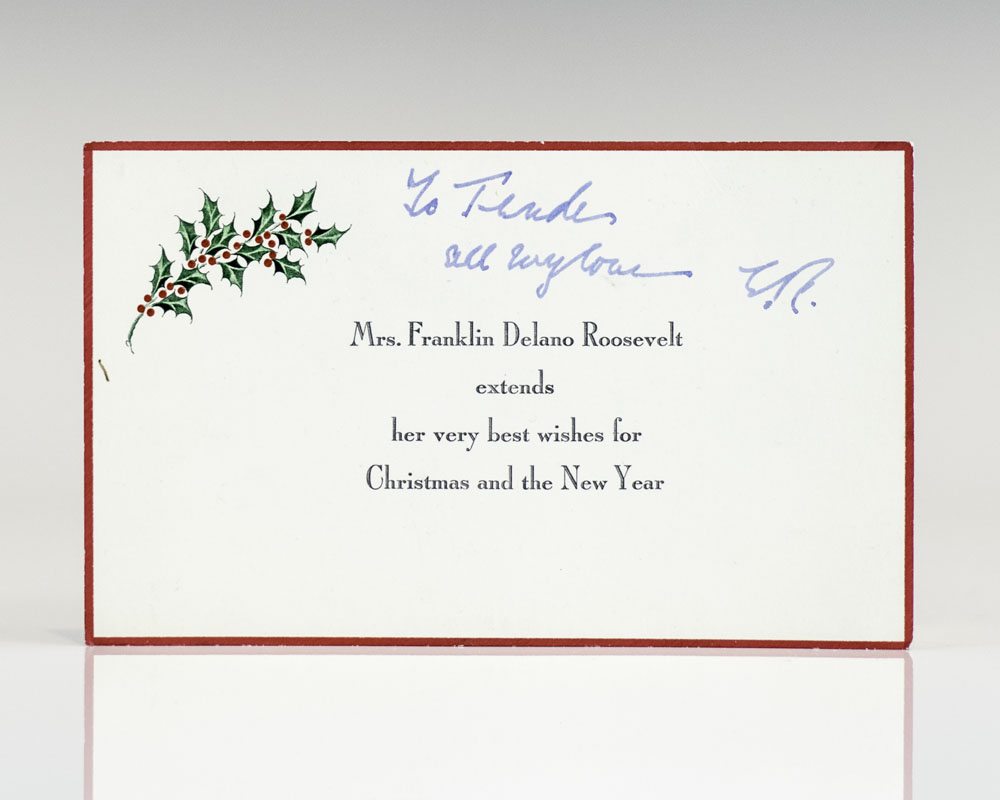 To
all my love
E.R.
Mrs. Franklin Delano Roosevelt
extends
her very best wishes for
Christmas and the New Year